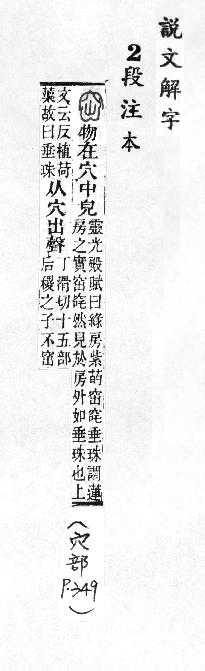 說文解字
2段注本
窋 物在穴中皃
靈光殿賦曰綠房紫菂窋窡垂珠謂蓮
房之實窋窡然見於房外如垂珠也上
文云反植荷
蕖故曰垂珠
从穴出聲
丁滑切十五部
后稷之子不窋
(穴部
P.349)